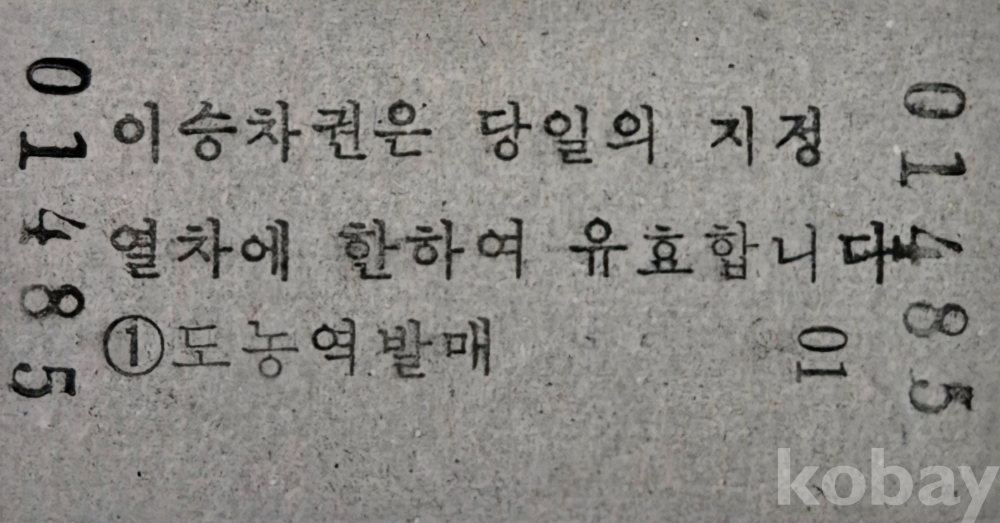 01485
이승차권은 당일의 지정
열차에 한하여 유효합니다
①도농역발매
01
01485
kobay